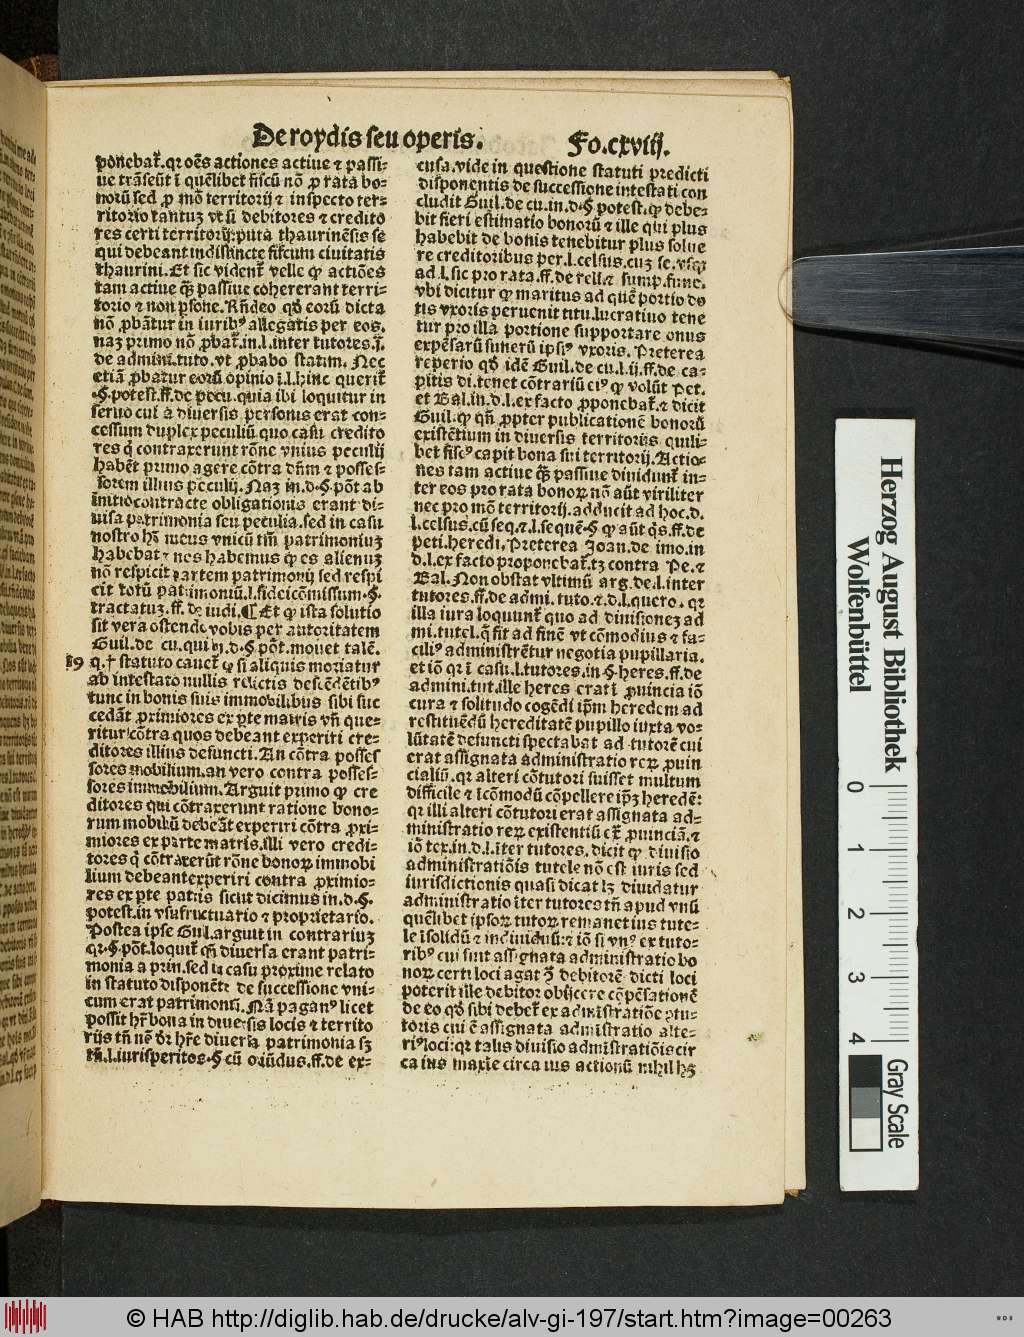 De roydis seu operis. Fo.cxviij.
ponebat᷑.qꝛ oēs actiones actiue ⁊ passi⸗
ue trāseūt ī quēlibet fiscū nō ꝓ rata bo⸗
norū sed ꝓ mō territorij ⁊ inspecto ter⸗
ritorio tantuꝫ vt ū debitores ⁊ credito
res certi territorij:puta thaurinēsis se
qui debeant indistincte fiscum ciuitatis
thaurini.Et sic vident᷑ velle ꝙ actiōes
tam actiue qꝫ passiue cohererant terri⸗
torio ⁊ non ꝑsone.Rn̄deo qd̓ eorū dicta
nō ꝓbātur in iuribꝰ allegatis per eos.
naꝫ primo nō ꝓbat᷑.in.l.inter tutores.ī.
de admini.tuto.vt ꝓbabo statim. Nec
etiā ꝓbatur eorū opinio ī.l.hinc querit᷑
.§.potest.ff.de pecu.quia ibi loquitur in
seruo cui a diuersis personis erat con⸗
cessum duplex peculiū quo casu credito
res q̄ contraxerunt rōne vnius peculij
habēt primo agere cōtra dn̄m ⁊ posses⸗
sorem illius peculij. Naꝫ in.d.§.pōt ab
initio contracte obligationis erant di⸗
uisa patrimonia seu peculia.sed in casu
nostro hꝫ meus vnicū tm̄ patrimoniuꝫ
habebat ⁊ nos habemus ꝙ es alienuꝫ
nō respicit partem patrimonij sed respi
cit totū patrimoniū.l.fideicōmissum.§.
tractatuꝫ.ff.de iudi.¶ Et ꝙ ista solutio
sit vera ostendo vobis per autoritatem
Guil.de cu.qui in.d.§.pōt.mouet talē.
19 q.† statuto cauet᷑ ꝙ si aliquis moriatur
ab intestato nullis relictis descēdētibꝰ
tunc in bonis suis immobilibus sibi suc
cedāt ꝓximiores ex ꝑte matris vn̄ que⸗
ritur cōtra quos debeant experiri cre⸗
ditores illius defuncti.An cōtra posses
sores mobilium.an vero contra posses⸗
sores immobilium.Arguit primo ꝙ cre
ditores qui cōtraxerunt ratione bono⸗
rum mobiliū debeāt experiri cōtra ꝓxi⸗
miores ex parte matris.illi vero credi⸗
tores q̄ cōtraxerūt rōne bonoꝝ immobi
lium debeant experiri contra ꝓximio⸗
res ex ꝑte patris sicut dicimus in.d.§.
potest.in vsufructuario ⁊ proprietario.
Postea ipse Guil.arguit in contrariuꝫ
qꝛ.§.pōt.loquit᷑ qn̄ diuersa erant patri⸗
monia a prin.sed in casu proxime relato
in statuto disponēte de successione vni⸗
cum erat patrimoniū. Nā paganꝰ licet
possit hr̄e bona in diuersis locis ⁊ territo
rijs tn̄ nō dꝫ hr̄e diuersa patrimonia sꝫ
.l.iurisperitos.§ cū oriūdus.ff.de ex⸗
cusa.vide in questione statuti predicti
disponentis de successione intestati con
cludit Guil.de cu.in.d.§ potest.ꝙ debe⸗
bit fieri estimatio bonorū ⁊ ille qui plus
habebit de bonis tenebitur plus solue
re creditoribus per.l.celsus.cuꝫ se.vsqꝫ
ad.l.sic pro rata.ff.de reli.⁊ sump.fune.
vbi dicitur ꝙ maritus ad quē portio do
tis vxoris peruenit titu.lucratiuo tene
tur pro illa portione supportare onus
expēsarū funerū ipsiꝰ vxoris. Preterea
reperio qd̓ idē Guil.de cu.l.ij.ff.de ca⸗
pitis di.tenet cōtrariū eiꝰ ꝙ volūt Pet.
et Bal.in.d.l.ex facto ꝓponebat᷑.⁊ dicit
Guil.ꝙ qn̄ ꝓpter publicationē bonorū
existētium in diuersis territoriis quili⸗
bet fiscꝰ capit bona sui territorij.Actio⸗
nes tam actiue qꝫ passiue diuidunt᷑ in⸗
ter eos pro rata bonoꝝ nō aūt viriliter
nec pro mō territorij.adducit ad hoc.d.
l.celsus.cū seq.⁊.l.sequē.§ ꝙ aūt qs.ff.de
peti.heredi. Preterea Joan.de imo.in
d.l.ex facto proponebat᷑.tꝫ contra Pe.⁊
Bal.Non obstat vltimū arg.de.l.inter
tutores.ff.de admi.tuto.⁊.d.l.quero. qꝛ
illa iura loquunt᷑ quo ad diuisioneꝫ ad
mi.tutel.q̄ fit ad finē vt cōmodius ⁊ fa⸗
ciliꝰ administrētur negotia pupillaria.
et iō qꝛ ī casu.l.tutores.in.§ heres.ff.de
admini.tut.ille heres erat ī ꝓuincia iō
cura ⁊ solitudo cogēdi ip̄m heredem ad
restituēdū hereditatē pupillo iuxta vo⸗
lūtatē defuncti spectabat ad tutorē cui
erat assignata administratio reꝝ ꝓuin
cialiū.qꝛ alteri cōtutori fuisset multum
difficile ⁊ īcōmodū cōpellere ip̄ꝫ heredē:
qꝛ illi alteri cōtutori erat assignata ad⸗
ministratio reꝝ existentiū ext᷑ ꝓuinciā.⁊
iō tex.in.d.l.īter tutores. dicit ꝙ diuisio
administratiōis tutele nō est iuris sed
iurisdictionis quasi dicat lꝫ diuidatur
administratio īter tutores tn̄ apud vnū
quēlibet ipsoꝝ tutoꝝ remanet ius tute⸗
le īsolidū ⁊ īndiuiduū:⁊ iō si vnꝰ ex tuto⸗
ribꝰ cui sint assignata administratio bo
noꝝ certi loci agat ꝯ debitorē dicti loci
poterit ille debitor obijcere cōpēsationē
de eo qd̓ sibi debet᷑ ex administratiōe ꝯtu⸗
toris cui ē assignata administratio alte⸗
riꝰ loci:qꝛ talis diuisio administratiōis cir
ca ius maxīe circa ius actionū nihil hꝫ
Herzog August Bibliothek
Wolfenbüttel
0 1 2 3 4
Gray Scale
© HAB http://diglib.hab.de/drucke/alv-gi-197/start.htm?image=00263